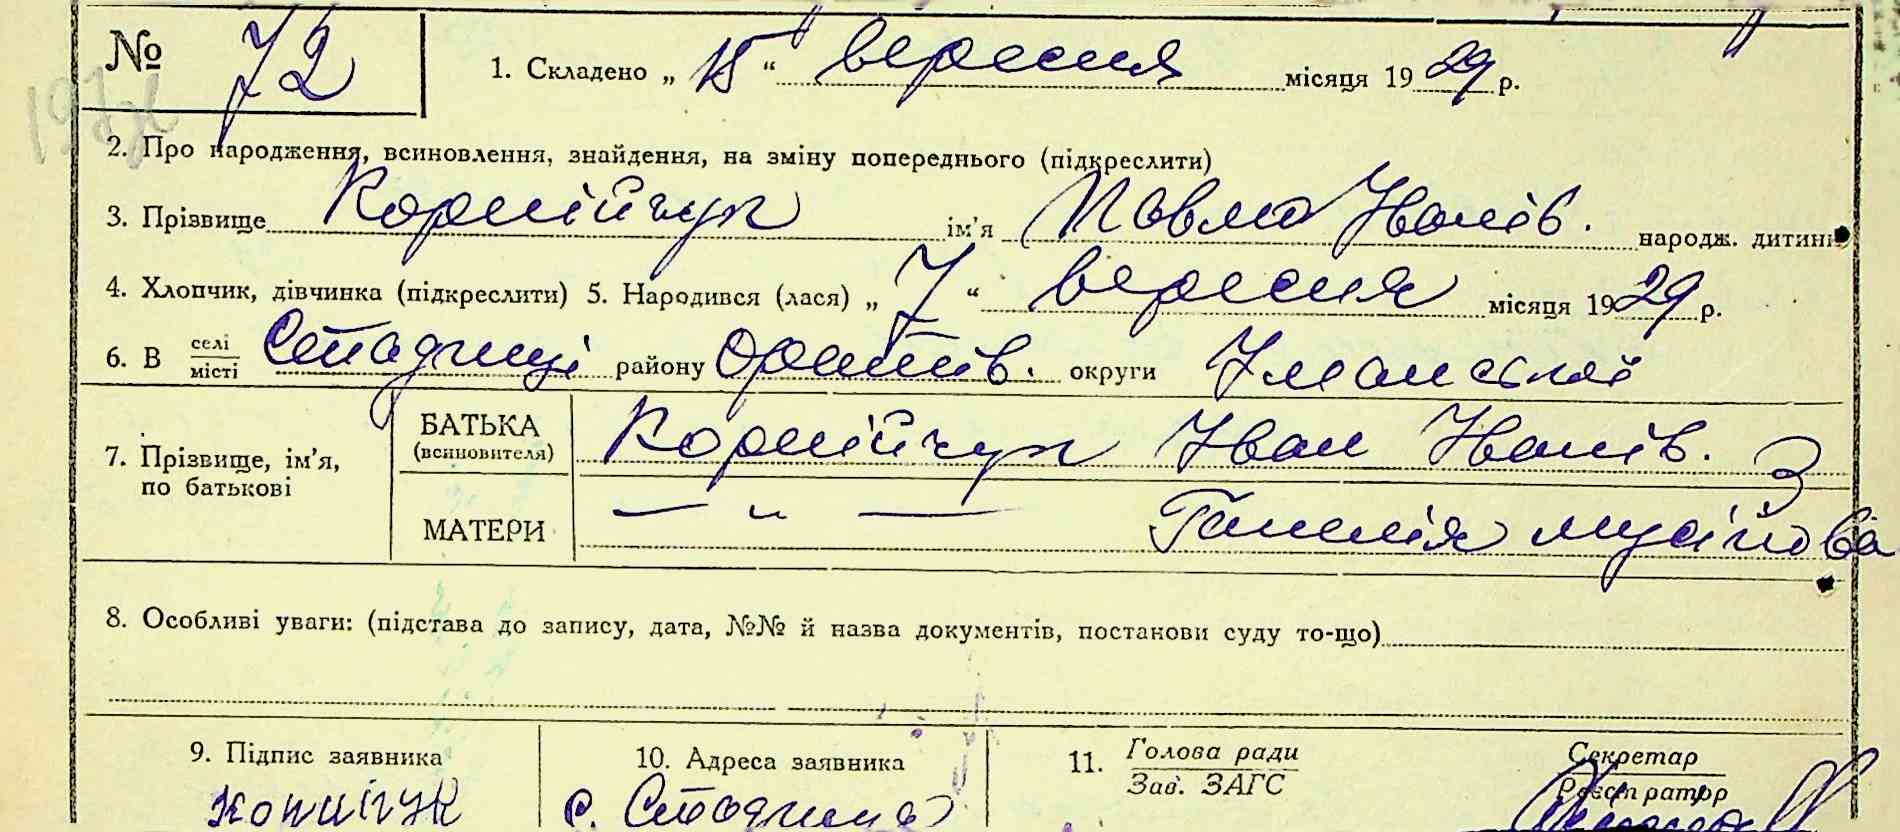 № 72
1. Складено „ 15 “ вересня місяця 19 29 р.
2. Про народження, всиновлення, знайдення, на зміну попереднього (підкреслити)
3. Прізвище Корнійчук ім'я Павло Іванів. народж. дитини
4. Хлопчик, дівчинка (підкреслити) 5. Народився (лася) „ 7 “ вересня місяця 19 29 р.
6. В селі місті Стадниці району Оратів. округи Уманської
7. Прізвище, ім'я, по батькові
БАТЬКА (всиновителя) Корнійчук Іван Іванів. З
МАТЕРИ — „ — Ганния Мусійова
8. Особливі уваги: (підстава до запису, дата, №№ й назва документів, постанови суду то-що)
9. Підпис заявника 10. Адреса заявника 11. Голова ради Секретар
Зав. ЗАГС Реєстратор
Корнійчук с. Стадниця